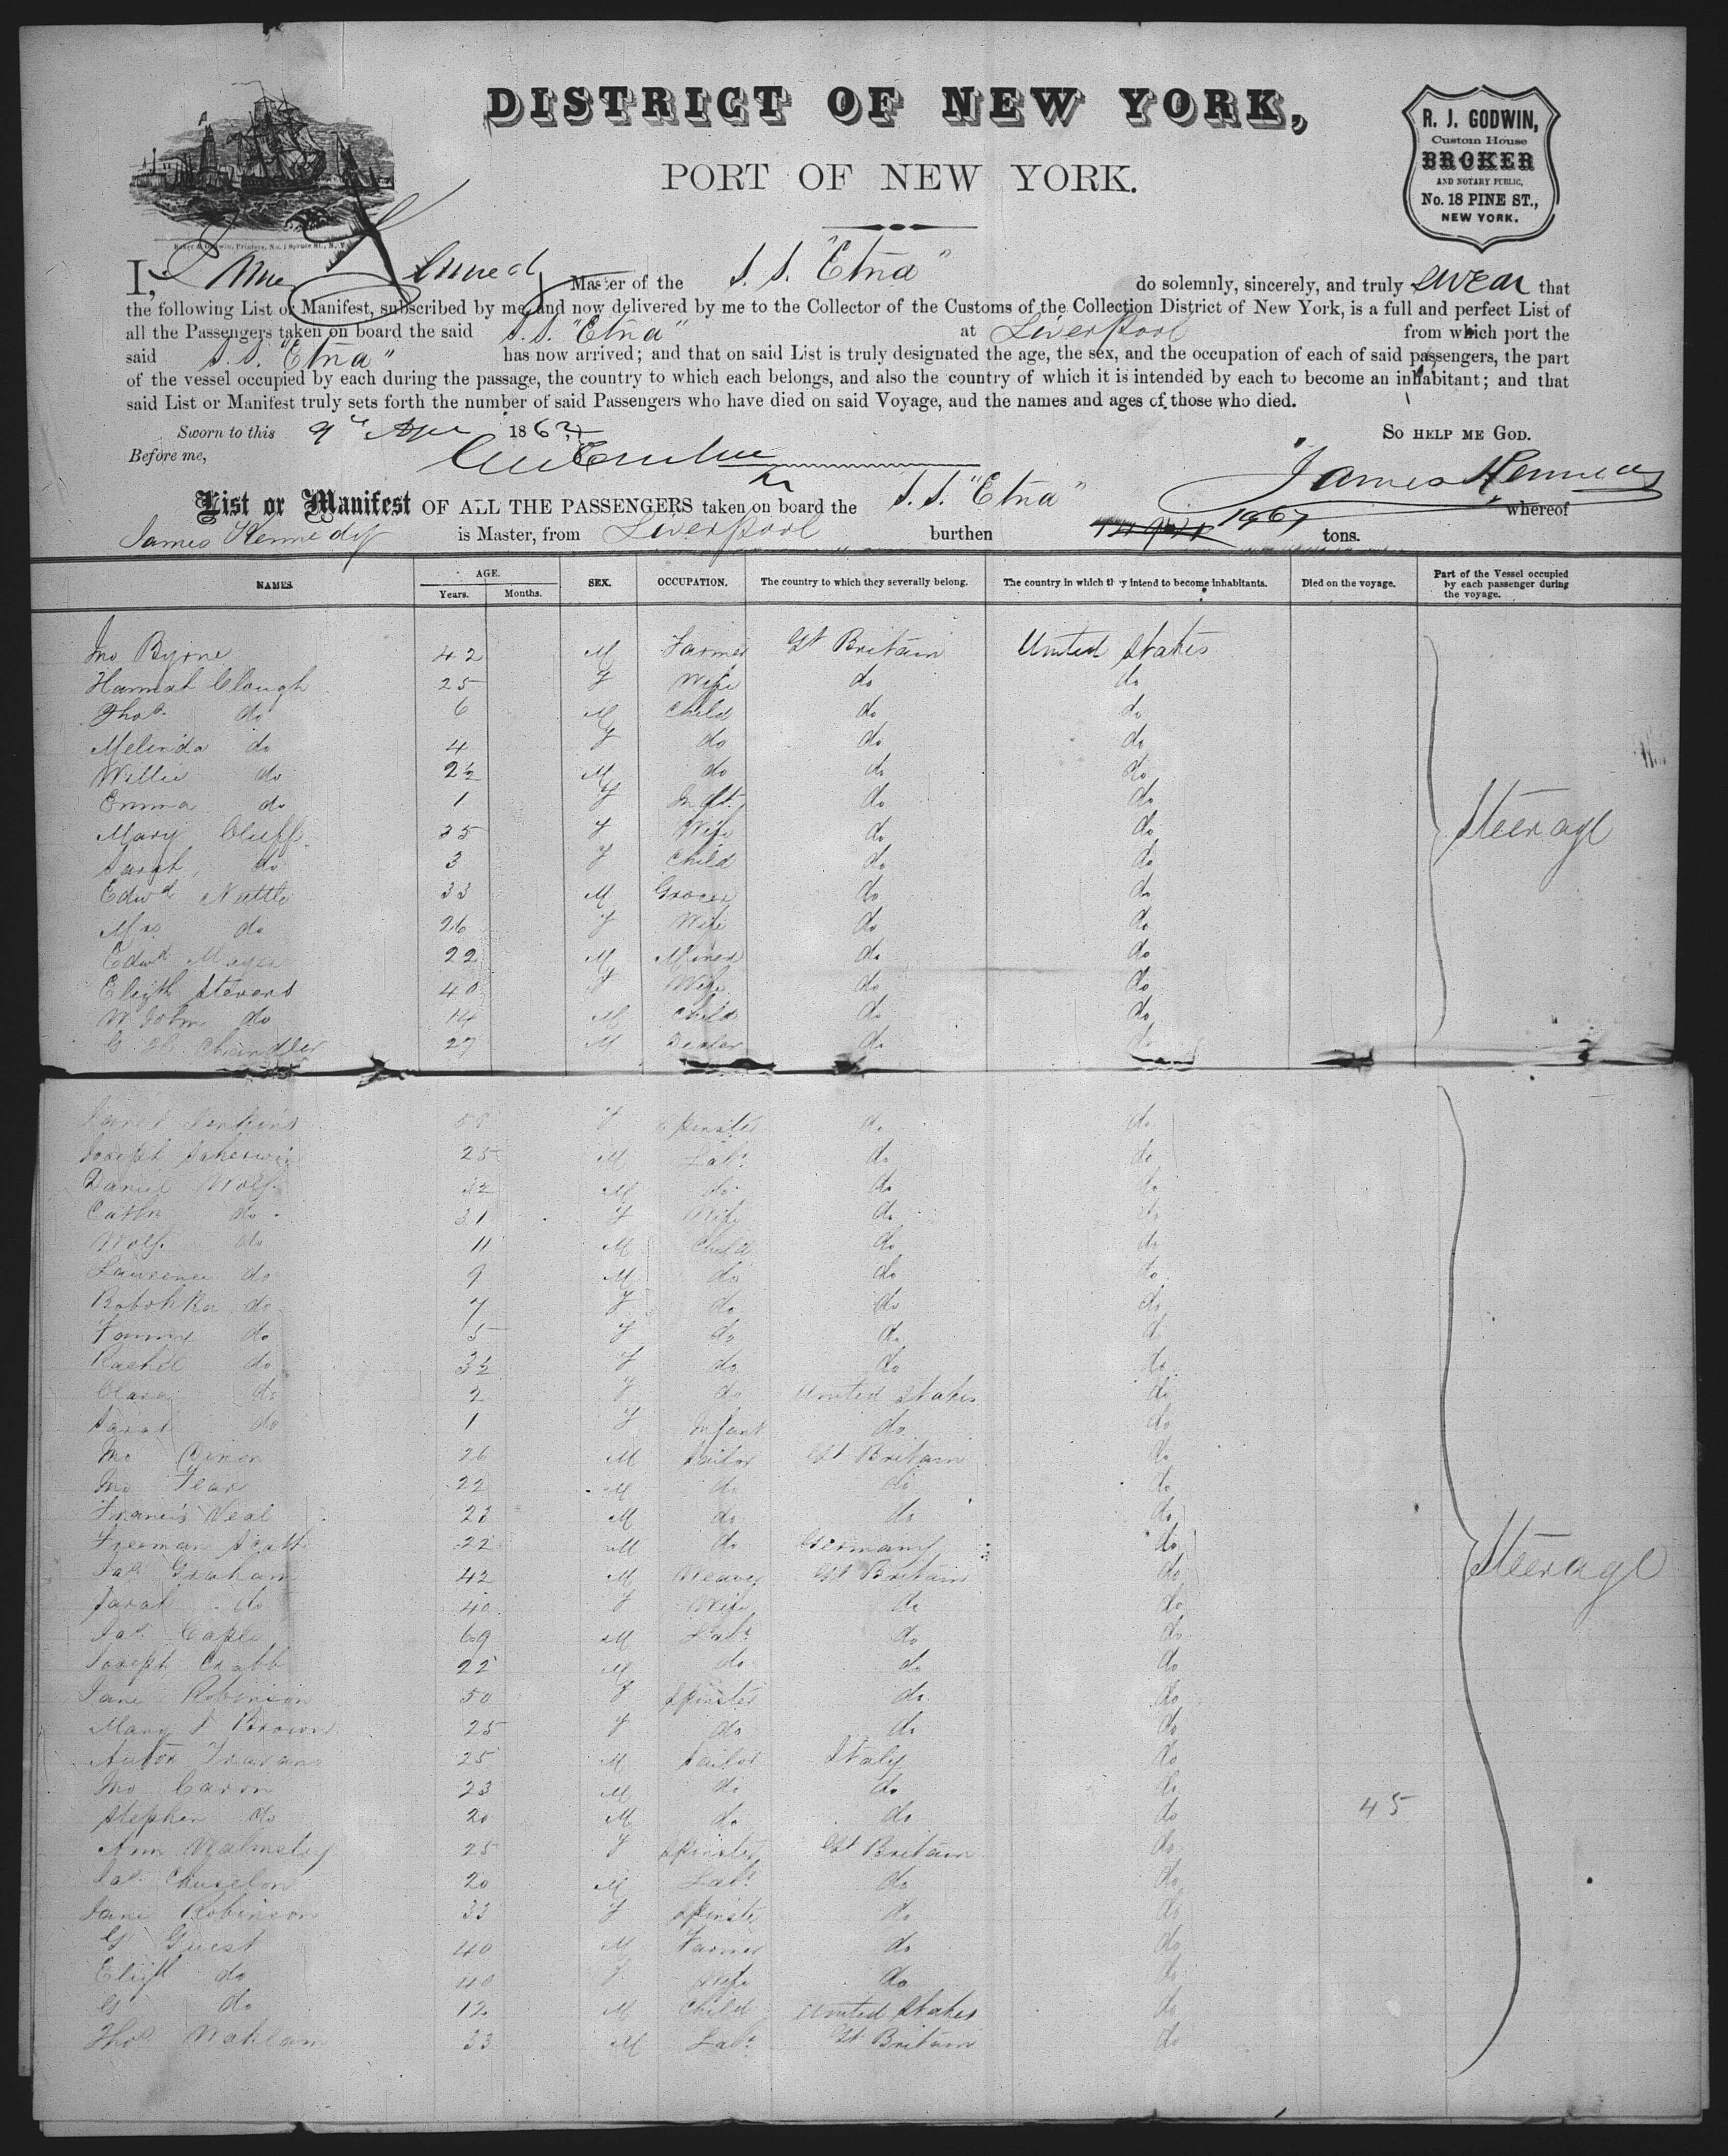 DISTRICT OF NEW YORK,
PORT OF NEW YORK.
R. J. GODWIN,
Custom House
BROKER
AND NOTARY PUBLIC,
No. 18 PINE ST.,
NEW YORK.
Baker & Godwin, Printers, No. 1 Spruce St., N. Y.
I, James Kennedy Master of the S. S. "Etna" do solemnly, sincerely, and truly swear that
the following List or Manifest, subscribed by me, and now delivered by me to the Collector of the Customs of the Collection District of New York, is a full and perfect List of
all the Passengers taken on board the said S. S. "Etna" at Liverpool from which port the
said S. S. "Etna" has now arrived; and that on said List is truly designated the age, the sex, and the occupation of each of said passengers, the part
of the vessel occupied by each during the passage, the country to which each belongs, and also the country of which it is intended by each to become an inhabitant; and that
said List or Manifest truly sets forth the number of said Passengers who have died on said Voyage, and the names and ages of those who died.
Sworn to this 9th Apl 186 SO HELP ME GOD.
Before me,
James Kennedy
List or Manifest OF ALL THE PASSENGERS taken on board the S. S. "Etna" whereof
James Kennedy is Master, from Liverpool burthen 1967 tons.
NAMES. AGE. Years. Months. SEX. OCCUPATION. The country to which they severally belong. The country in which they intend to become inhabitants. Died on the voyage. Part of the Vessel occupied by each passenger during the voyage.
Jno Byrne 42 M Farmer Gt Britain United States
Hannah Clough 25 F Wife do do
Thos. do 6 M Child do do
Melinda do 4 F do do do
Willie do 2½ M do do do
Emma do 1 F Inft. do do
Mary Cluff 35 F Wife do do Steerage
Sarah do 3 F Child do do
Edwd Nuttle 33 M Grocer do do
Mrs do 26 F Wife do do
Edwd 22 M Miner do do
Elizth Stevens 40 F Wife do do
W. John do 14 M Child do do
Chandler 27 M do do
Janet Jenkins F Spinster do do
Joseph 25 M Labr do do
Daniel Wolf 32 M do do do
Cathn do 31 F Wife do do
Wolf do 11 M Child do do
Lawrence do 9 M do do do
do 7 F do do do
Fanny do 5 F do do do
Rachel do 3½ F do do do
Clara do 2 F do United States do
Sarah do 1 F Infant do do
Jno 26 M Sailor Gt Britain do
Jno Fear 22 M do do do
Francis Neal 23 M do do do
Freeman Scott 22 M do Germany do
Jas. Graham 42 M Weaver Gt Britain do Steerage
Sarah do 40 F Wife do do
Jas. Caple 69 M Labr do do
Joseph Crabb 22 M do do do
Jane Robinson 50 F Spinster do do
Mary Brown 25 F do do do
25 M Sailor Italy do
Jno Caron 23 M do do do
Stephen do 20 M do do do 45
Ann Walmsley 25 F Spinster Gt Britain do
Jas. 20 M Labr do do
Jane Robinson 33 F Spinster do do
G Guest 40 M Farmer do do
Elizth do 40 F Wife do do
G do 12 M Child United States do
Thos. 33 M Labr Gt Britain do